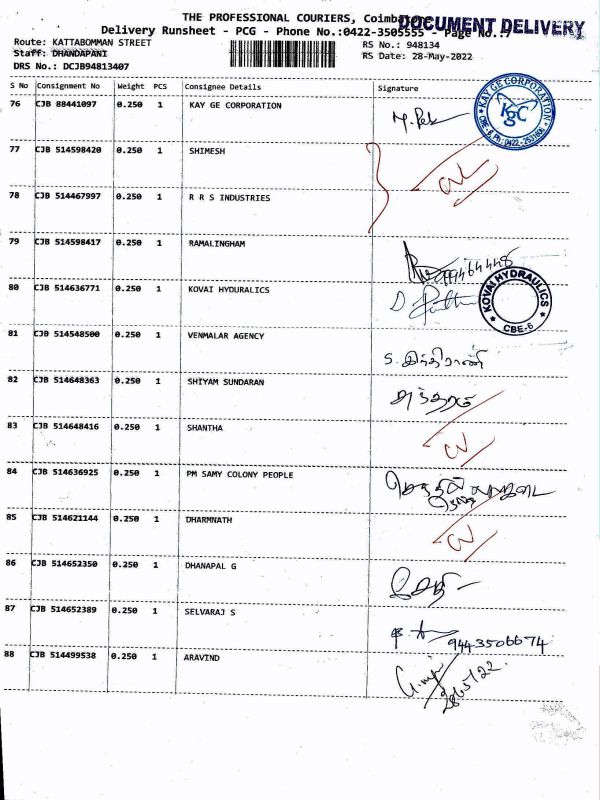 THE PROFESSIONAL COURIERS, Coimbatore
DOCUMENT DELIVERY
Delivery Runsheet - PCG - Phone No.:0422-3505555 - Page No.:7
Route: KATTABOMMAN STREET
RS No.: 948134
Staff: DHANDAPANI
RS Date: 28-May-2022
DRS No.: DCJB94813407
S No Consignment No Weight PCS Consignee Details Signature
76 CJB 88441097 0.250 1 KAY GE CORPORATION
KAY GE CORPORATION
KGC
CBE-6, Ph: 0422-2531606
77 CJB 514598420 0.250 1 SHIMESH
78 CJB 514467997 0.250 1 R R S INDUSTRIES
79 CJB 514598417 0.250 1 RAMALINGHAM
80 CJB 514636771 0.250 1 KOVAI HYDURALICS
KOVAI HYDRAULICS
CBE-6
81 CJB 514548500 0.250 1 VENMALAR AGENCY
S. இந்திராணி
82 CJB 514648363 0.250 1 SHIYAM SUNDARAN
83 CJB 514648416 0.250 1 SHANTHA
84 CJB 514636925 0.250 1 PM SAMY COLONY PEOPLE
85 CJB 514621144 0.250 1 DHARMNATH
86 CJB 514652350 0.250 1 DHANAPAL G
87 CJB 514652389 0.250 1 SELVARAJ S
9443506674
88 CJB 514499538 0.250 1 ARAVIND
28/5/22.